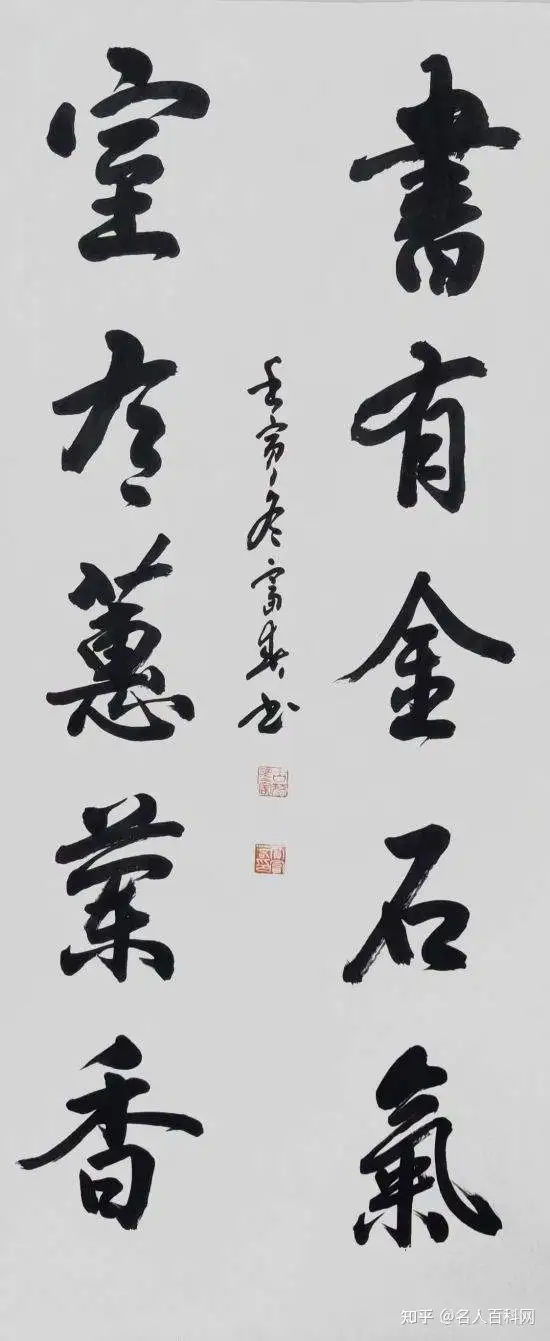 書有金石氣
室有蕙蘭香
壬寅冬富春书
知乎 @名人百科网